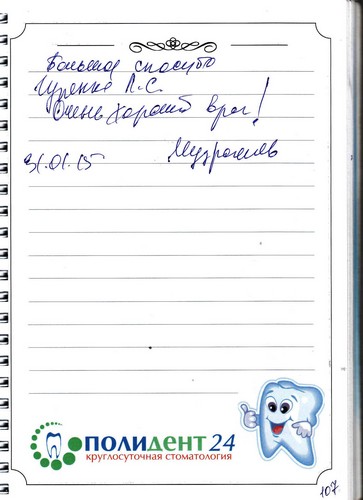 Большое спасибо
Гуренко Л.С.
Очень хороший врач!
31.01.15
ПОЛИДЕНТ 24
круглосуточная стоматология
107